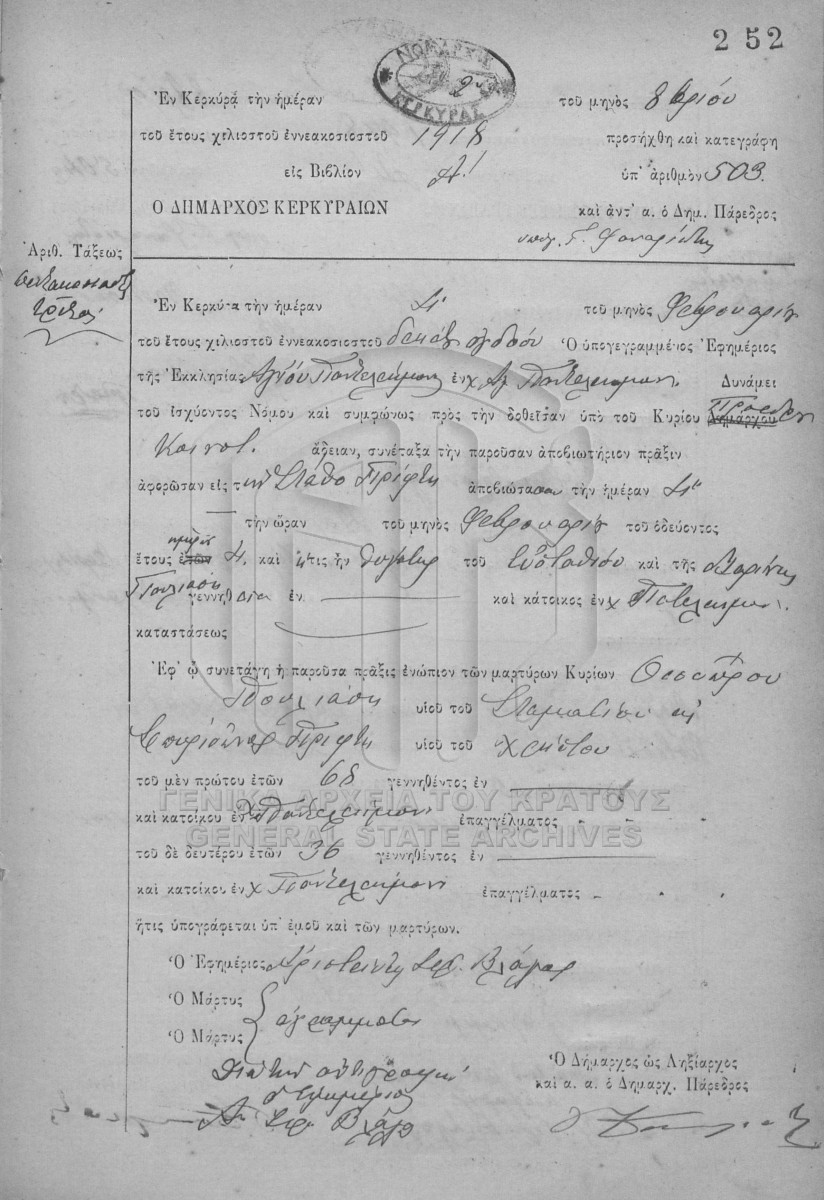 252
ΝΟΜΑΡΧΙΑ
ΚΕΡΚΥΡΑΣ
Ἐν Κερκύρᾳ τὴν ἡμέραν 2 τοῦ μηνὸς 8βρίου
τοῦ ἔτους χιλιοστοῦ ἐννεακοσιοστοῦ 1918 προσήχθη καὶ κατεγράφη
εἰς Βιβλίον Α' ὑπ' ἀριθμὸν 503.
Ο ΔΗΜΑΡΧΟΣ ΚΕΡΚΥΡΑΙΩΝ καὶ ἀντ' α. ὁ Δημ. Πάρεδρος
Ἀριθ. Τάξεως
Ἐν Κερκύρα τὴν ἡμέραν 4' τοῦ μηνὸς Φεβρουαρίου
τοῦ ἔτους χιλιοστοῦ ἐννεακοσιοστοῦ δεκάτου ὀγδόου Ὁ ὑπογεγραμμένος Ἐφημέριος
τῆς Ἐκκλησίας Ἁγίου Παντελεήμονος ἐν χ. Αγ Παντελεήμονι. Δυνάμει
τοῦ ἰσχύοντος Νόμου καὶ συμφώνως πρὸς τὴν δοθεῖσαν ὑπὸ τοῦ Κυρίου Δημάρχου Προέδρου
Κοινοτ. ἄδειαν, συνέταξα τὴν παροῦσαν ἀποβιωτήριον πρᾶξιν
ἀφορῶσαν εἰς τὴν Στάθο Πρίφτη ἀποβιώσασαν τὴν ἡμέραν 4'
τὴν ὥραν τοῦ μηνὸς Φεβρουαρίου τοῦ ὁδεύοντος
ἔτους ἐτῶν ἡμερῶν 4. καὶ ἥτις ἦν θυγάτηρ τοῦ Εὐσταθίου καὶ τῆς Μαρίνας
Πουλιάση γεννηθεῖσα ἐν καὶ κάτοικος ἐν χ Παντελεήμονι.
καταστάσεως
Ἐφ' ᾧ συνετάγη ἡ παροῦσα πρᾶξις ἐνώπιον τῶν μαρτύρων Κυρίων Θεοδώρου
Πουλιάση υἱοῦ τοῦ Σταματίου κ
Σπυρίδωνος Πρίφτη υἱοῦ τοῦ Χρήστου
τοῦ μὲν πρώτου ἐτῶν 68 γεννηθέντος ἐν
καὶ κατοίκου ἐν χ Παντελεήμονι ἐπαγγέλματος
τοῦ δὲ δευτέρου ἐτῶν 36 γεννηθέντος ἐν
καὶ κατοίκου ἐν χ Παντελεήμονι ἐπαγγέλματος
ἥτις ὑπογράφεται ὑπ' ἐμοῦ καὶ τῶν μαρτύρων.
Ὁ Ἐφημέριος Βλάχος
Ὁ Μάρτυς
Ὁ Μάρτυς ἀγράμματοι
Ὁ Δήμαρχος ὡς Ληξίαρχος
καὶ α. α. ὁ Δημαρχ. Πάρεδρος
ὁ Ἐφημέριος
ΓΕΝΙΚΑ ΑΡΧΕΙΑ ΤΟΥ ΚΡΑΤΟΥΣ
GENERAL STATE ARCHIVES